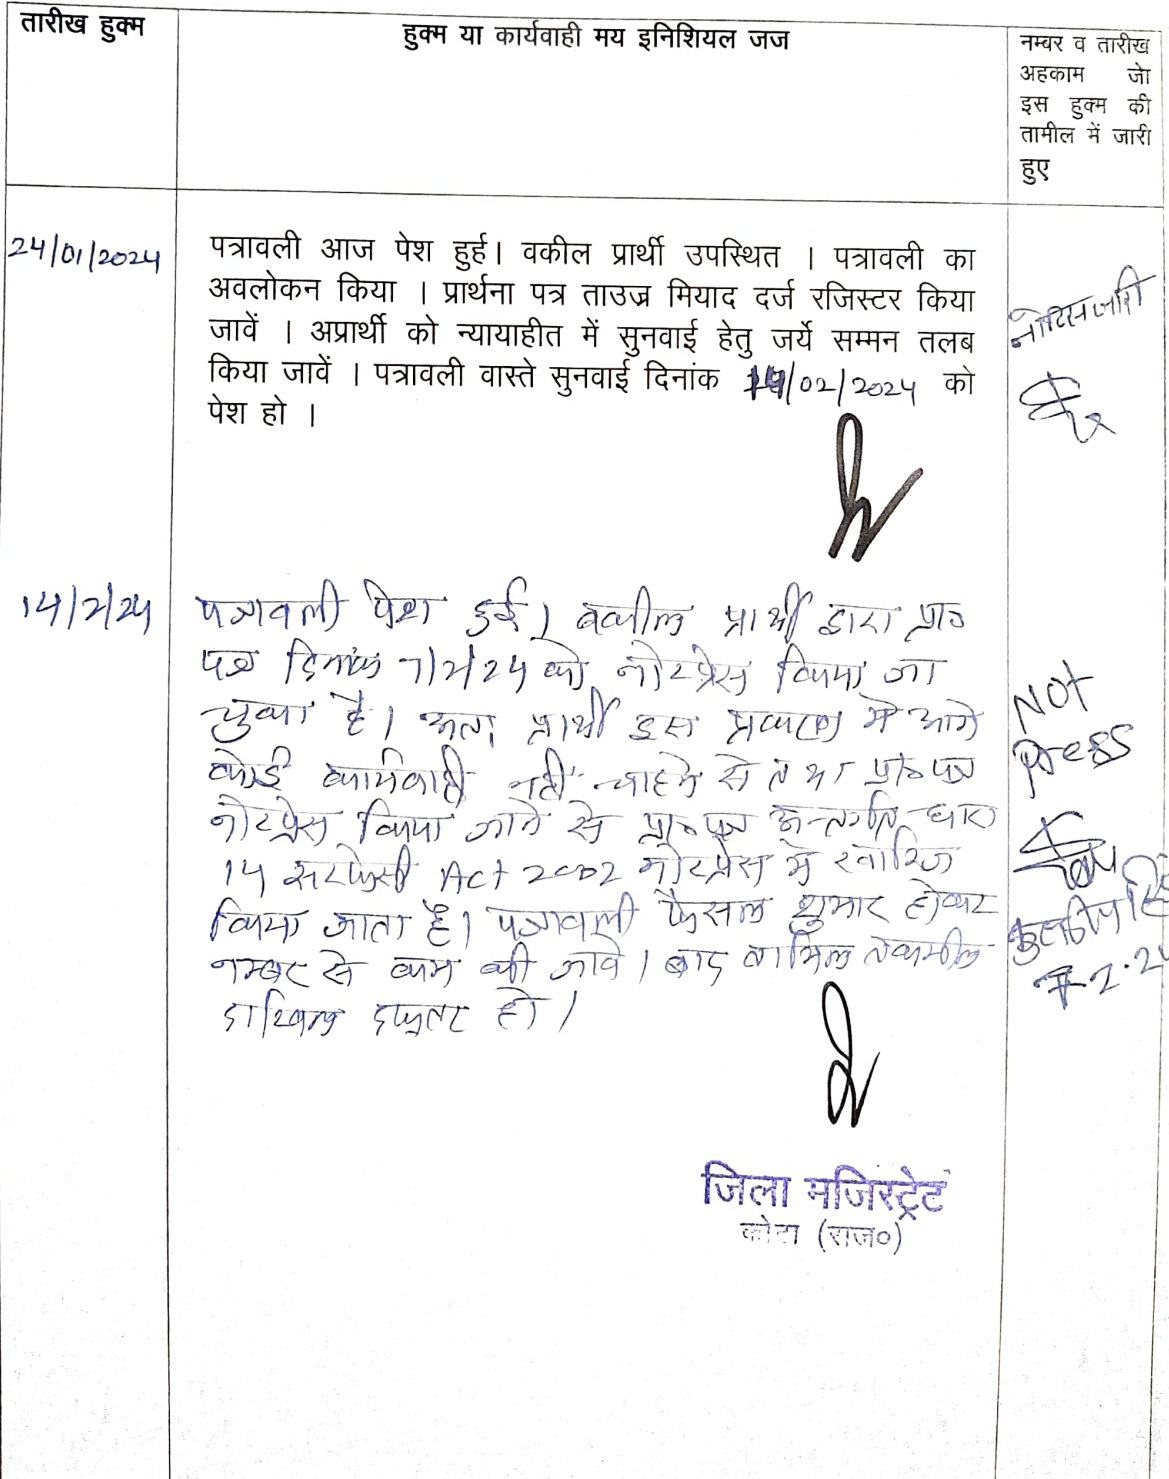 तारीख हुक्म
हुक्म या कार्यवाही मय इनिशियल जज
नम्बर व तारीख
अहकाम जो
इस हुक्म की
तामील में जारी
हुए
24/01/2024
पत्रावली आज पेश हुई। वकील प्रार्थी उपस्थित । पत्रावली का
अवलोकन किया । प्रार्थना पत्र ताउज्र मियाद दर्ज रजिस्टर किया
जावें । अप्रार्थी को न्यायाहीत में सुनवाई हेतु जर्ये सम्मन तलब
किया जावें । पत्रावली वास्ते सुनवाई दिनांक 14/02/2024 को
पेश हो ।
नोटिस जारी
14/2/24
पत्रावली पेश हुई। वकील प्रार्थी द्वारा प्रा०
पत्र दिनांक 7/2/24 को नोटप्रेस किया जा
चुका है। अतः प्रार्थी इस प्रकरण में आगे
कोई कार्यवाही नहीं चाहने से तथा प्रा० पत्र
नोटप्रेस किया जाने से प्रा० पत्र अन्तर्गत धारा
14 सरफेसी Act 2002 नोटप्रेस में खारिज
किया जाता है। पत्रावली फैसल शुमार होकर
नम्बर से कम की जावे। बाद तामिल तकमील
दाखिल दफ्तर हो।
NOT
press
7-2-24
जिला मजिस्ट्रेट
कोटा (राज०)